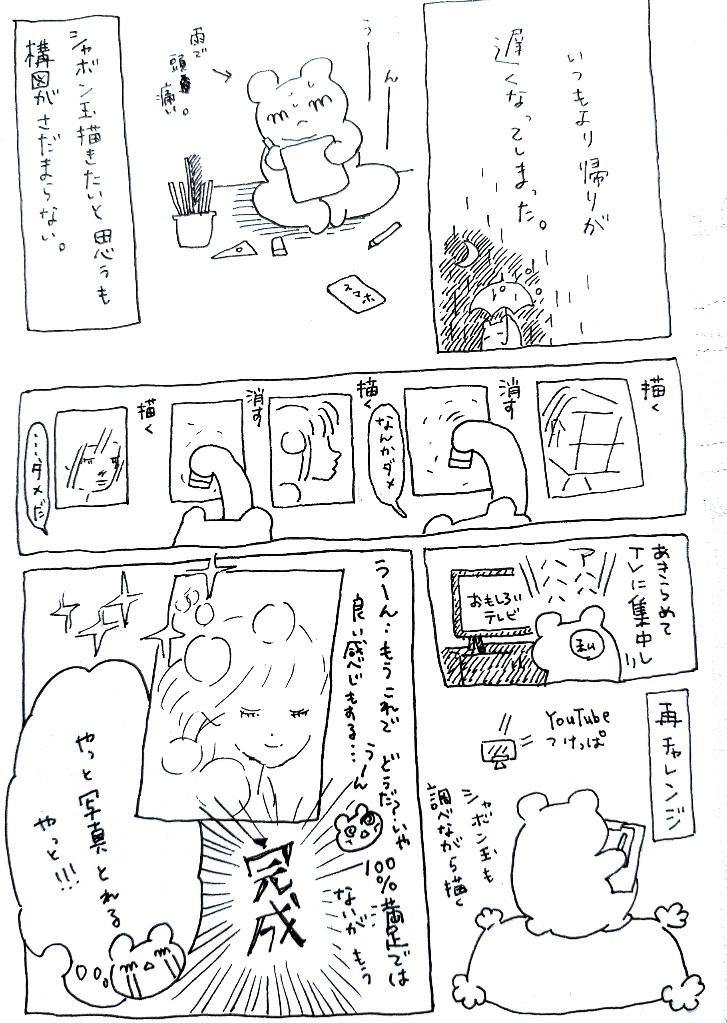 いつもより帰りが
遅くなってしまった。
うーん
雨で
頭痛い。
スマホ
シャボン玉描きたいと思うも
構図がさだまらない。
描く
消す
なんかダメ
描く
消す
描く
……ダメだ
あきらめて
TVに集中し
アハハ
おもしろい
テレビ
私
再チャレンジ
YouTube
つけっぱ
シャボン玉も
調べながら描く
うーん…もうこれでどうだ?いや
良い感じもする…うーん
100%満足では
ないがもう
完成
やっと写真とれる
やっと!!!